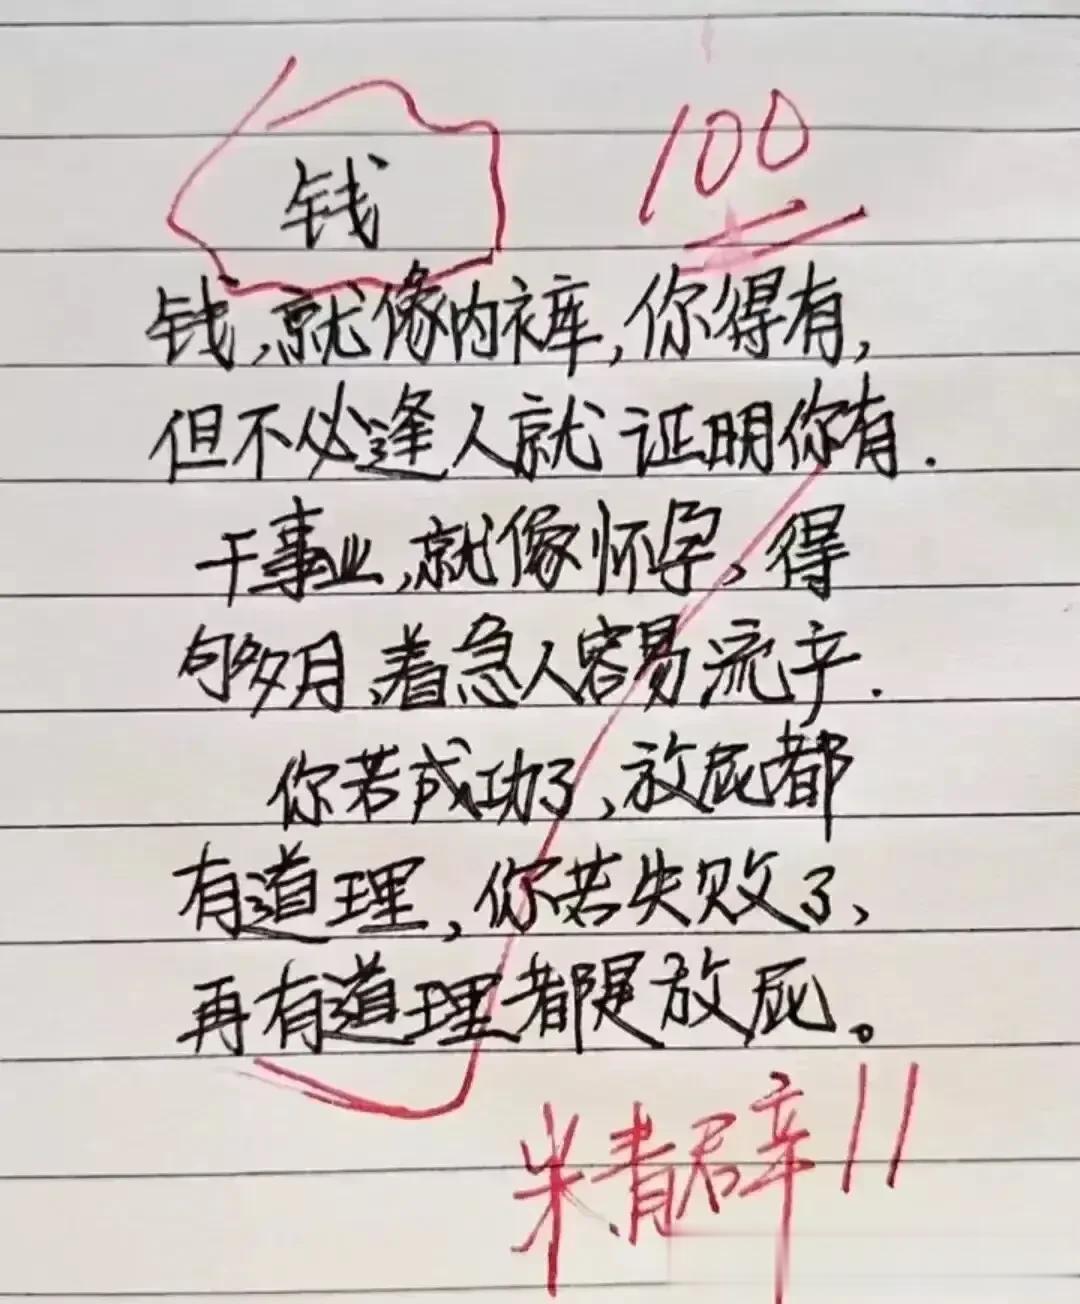 钱
100
钱,就像内裤,你得有,
但不必逢人就证明你有.
干事业,就像怀孕,得
够多月,着急人容易流产.
你若成功了,放屁都
有道理,你若失败了,
再有道理都是放屁。
精辟!!